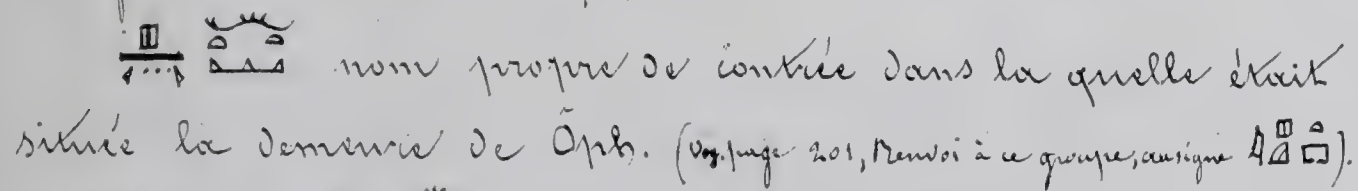 nom propre de contrée dans la quelle était
située la demeure de Ôph. (Voy. page 201, Renvoi à ce groupe, au signe ).